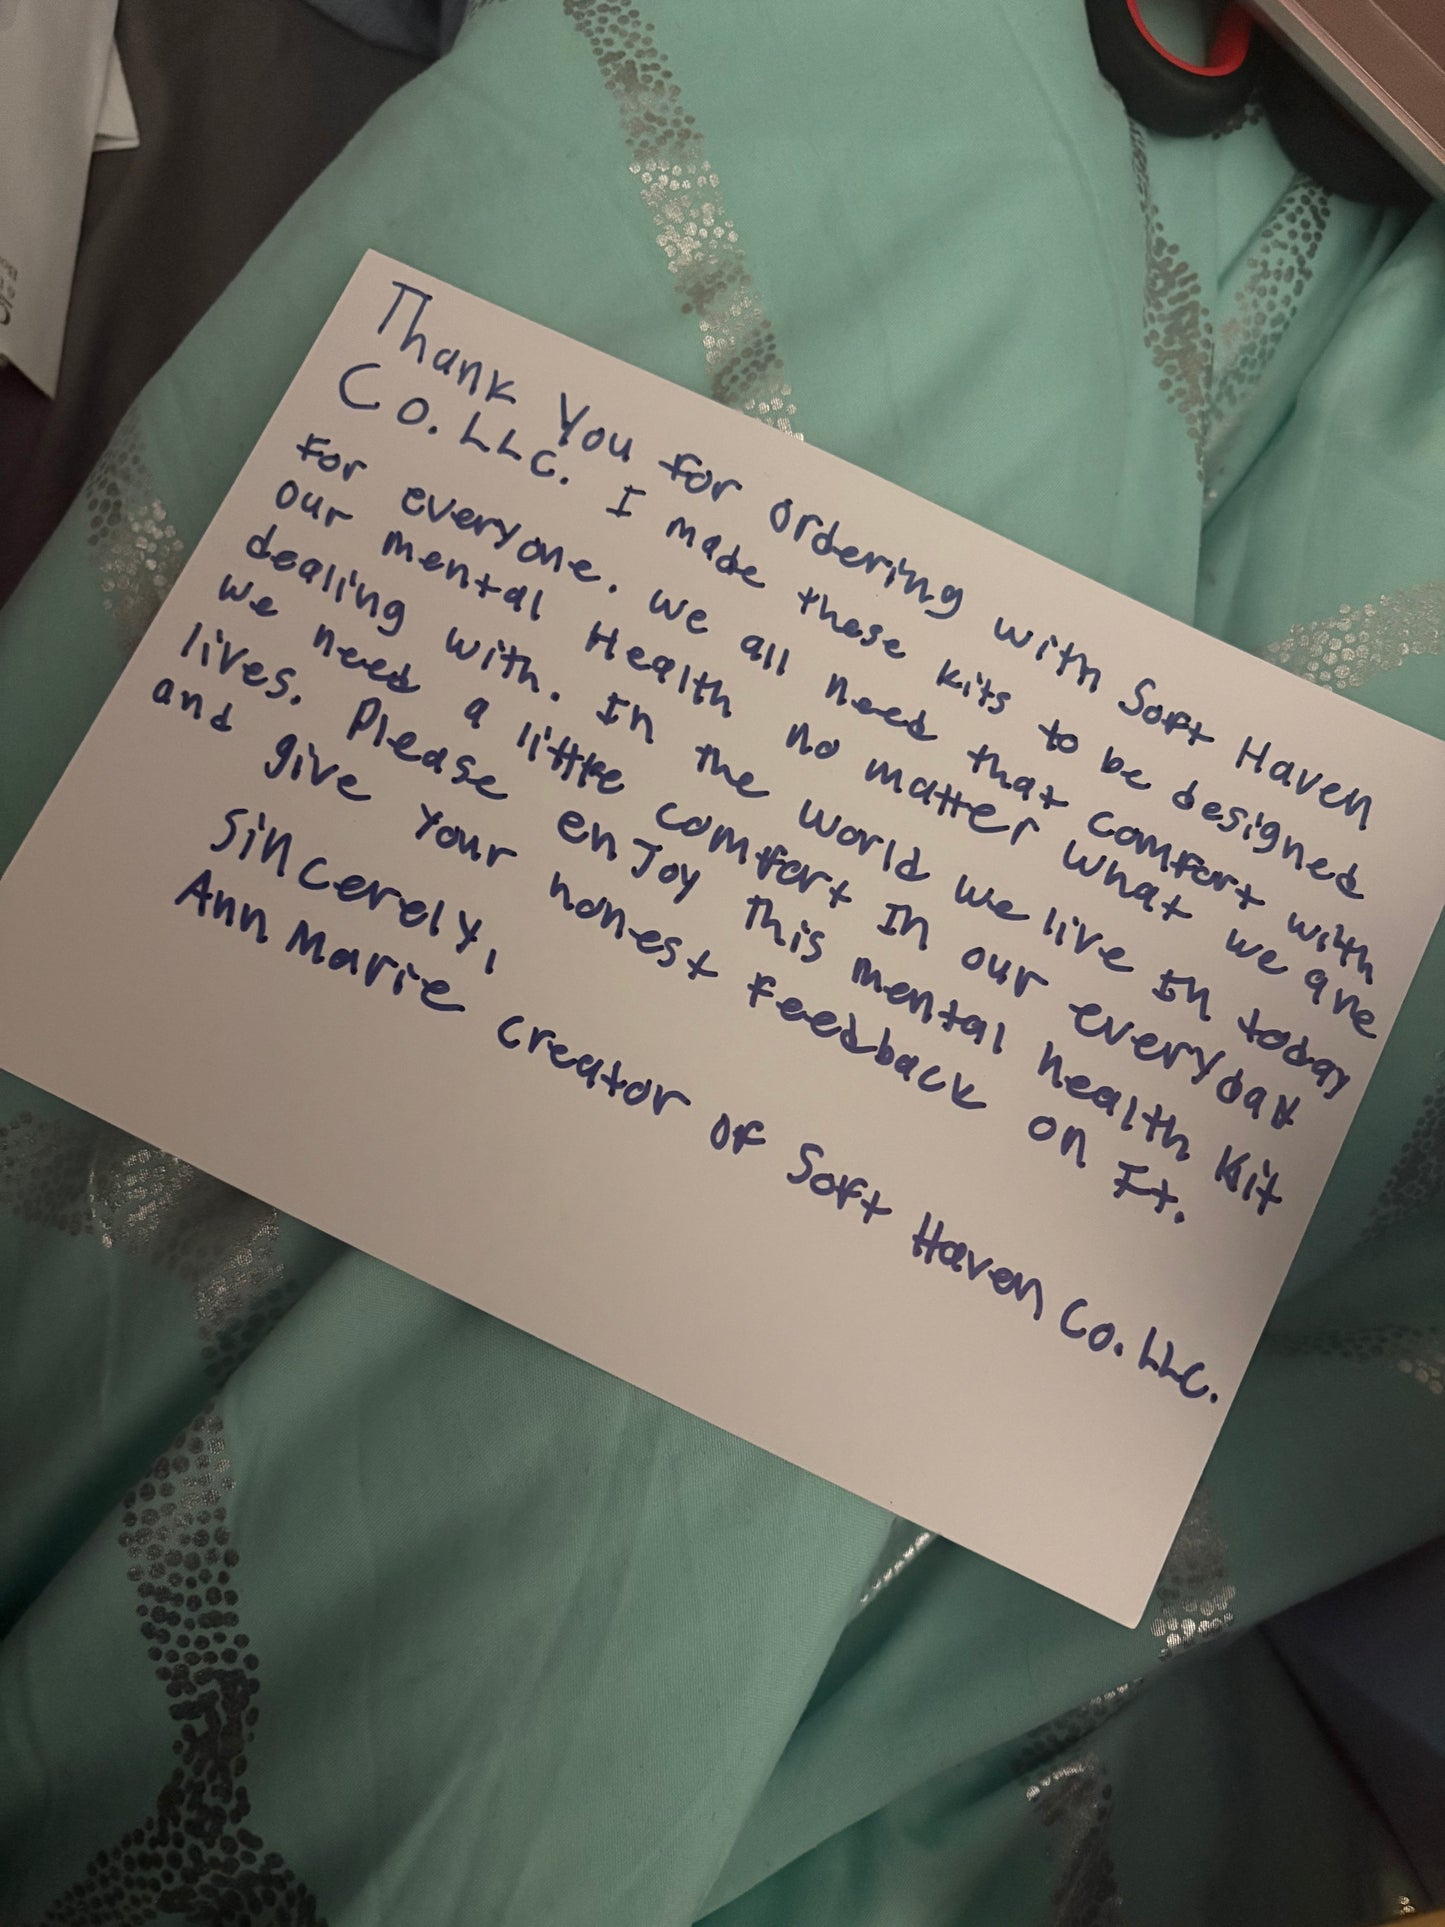 Thank You for ordering with Soft Haven
Co. LLC. I made these kits to be designed
for everyone. we all need that comfort with
our mental Health no matter what we are
dealing with. In the world we live in today
we need a little comfort In our everyday
lives. Please enJoy this mental health Kit
and give your honest feedback on It.
Sincerely,
Ann Marie creator of Soft Haven Co. LLC.